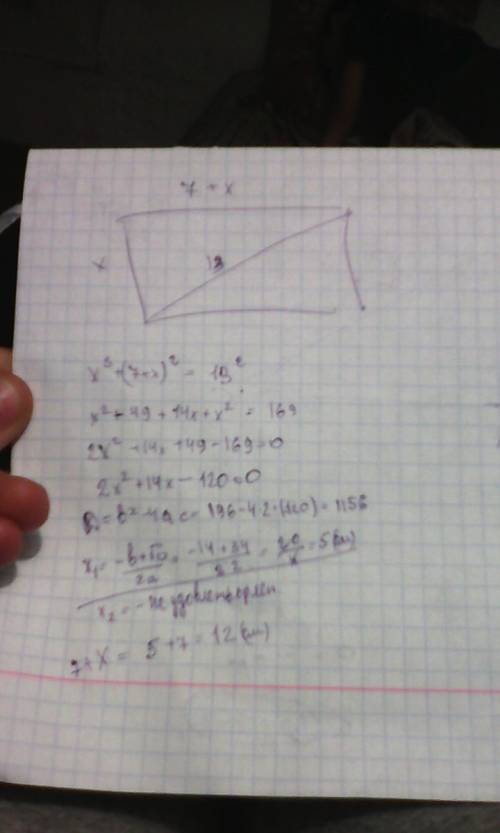 7 + x
x
13
x² + (7+x)² = 13²
x² + 49 + 14x + x² = 169
2x² + 14x + 49 - 169 = 0
2x² + 14x - 120 = 0
D = b² - 4ac = 196 - 4·2·(-120) = 1156
x₁ = (-b+√D)/2a = (-14+34)/2·2 = 20/4 = 5 (см)
x₂ = - не удовлетворяет
7+x = 5+7 = 12 (см)